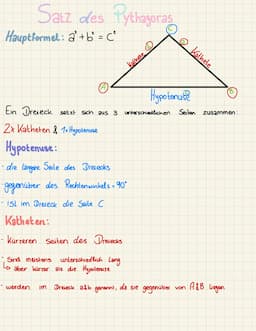 Satz des Pythagoras
Hauptformel: a² + b² = c²
C
b
a
Kathete
Kathete
A
B
Hypotenuse
Ein Dreieck setzt sich aus 3 unterschiedlichen Seiten zusammen:
2x Katheten & 1x Hypotenuse
Hypotenuse:
- die längere Seite des Dreiecks
- gegenüber des Rechtenwinkels = 90°
- ist im Dreieck die Seite C
Katheten:
- kürzeren Seiten des Dreiecks
- sind meistens unterschiedlich lang
↳ aber kürzer als die Hypotenuse
- werden im Dreieck a&b genannt, da sie gegenüber von A&B liegen